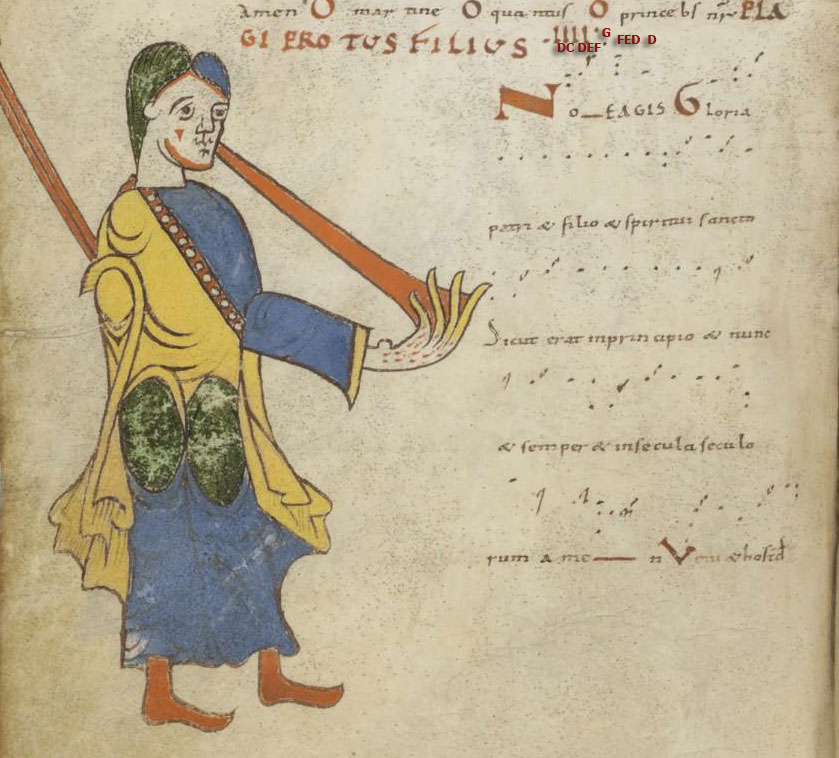 amen O mar tine O quantus O princeps nr PLA
GI PROTUS FILIUS IIII G
DC DEF FED D
No_EAGIS Gloria
patri & filio & spiritui sancto
Sicut erat inprincipio & nunc
& semper & insecula seculo
rum a me n V